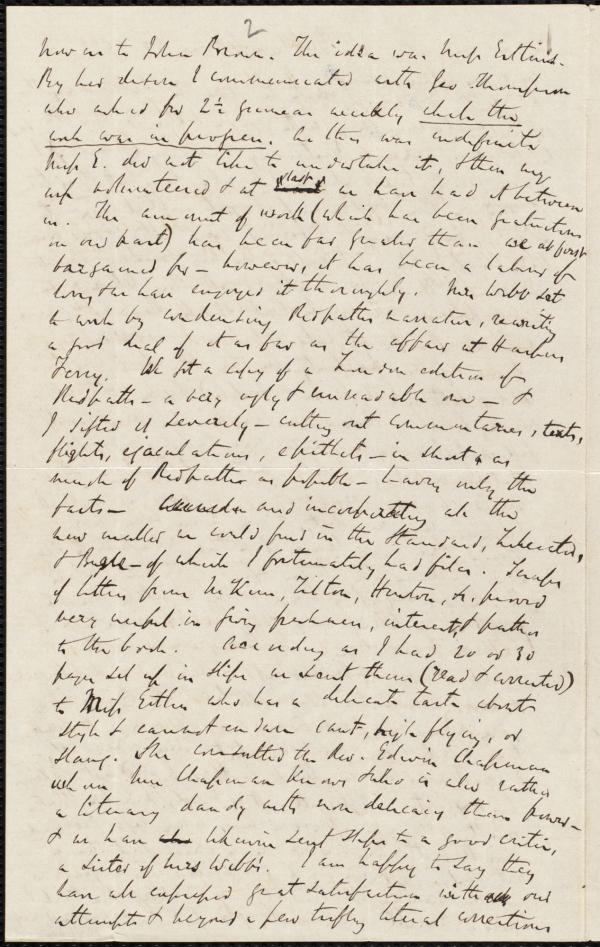 2
now as to John Brown. The idea was Miss Estlin's.
By her desire I communicated with Geo. Thompson
who asked for 2½ guineas weekly while the
work was in progress. As this was indefinite
Miss E. did not like to undertake it, & then my
wife volunteered & at last we have had it between
us. The amount of work (which has been gratuitous
on our part) has been far greater than we at first
bargained for – however, it has been a labour of
love, & we have enjoyed it thoroughly. Mrs Webb set
to work by condensing Redpath's narrative, rewriting
a good deal of it as far as the affair at Harpers
Ferry. We got a copy of a London edition of
Redpath – a very ugly & unreadable one – &
I sifted it severely – cutting out commentaries, texts,
flights, ejaculations, epithets – in short as
much of Redpath as possible – leaving only the
facts – and incorporating all the
new matter we could find in the Standard, Liberator,
& Bugle – of which I fortunately had files. Scraps
of letters from McKim, Tilton, Hinton, &c. proved
very useful in giving freshness, interest, & pathos
to the book. According as I had 20 or 30
pages set up in slips we sent them (read & corrected)
to Miss Estlin who has a delicate taste about
style & cannot endure cant, high flying, or
slang. She consulted the Rev. Edwin Chapman
whom Mrs Chapman knows & who is also rather
a literary dandy with more delicacy than power –
& we have likewise sent slips to a good critic,
a sister of Mrs Webb's. I am happy to say they
have all expressed great satisfaction with our
attempts & beyond a few trifling literal corrections